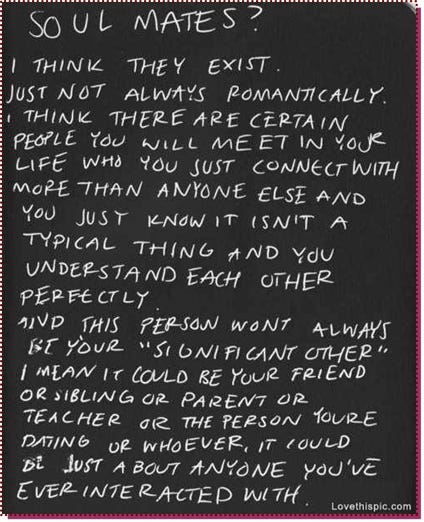 SOUL MATES?
I THINK THEY EXIST.
JUST NOT ALWAYS ROMANTICALLY.
I THINK THERE ARE CERTAIN
PEOPLE YOU WILL MEET IN YOUR
LIFE WHO YOU JUST CONNECT WITH
MORE THAN ANYONE ELSE AND
YOU JUST KNOW IT ISN'T A
TYPICAL THING AND YOU
UNDERSTAND EACH OTHER
PERFECTLY.
AND THIS PERSON WONT ALWAYS
BE YOUR "SIGNIFICANT OTHER"
I MEAN IT COULD BE YOUR FRIEND
OR SIBLING OR PARENT OR
TEACHER OR THE PERSON YOURE
DATING OR WHOEVER, IT COULD
BE JUST ABOUT ANYONE YOU'VE
EVER INTERACTED WITH.
Lovethispic.com